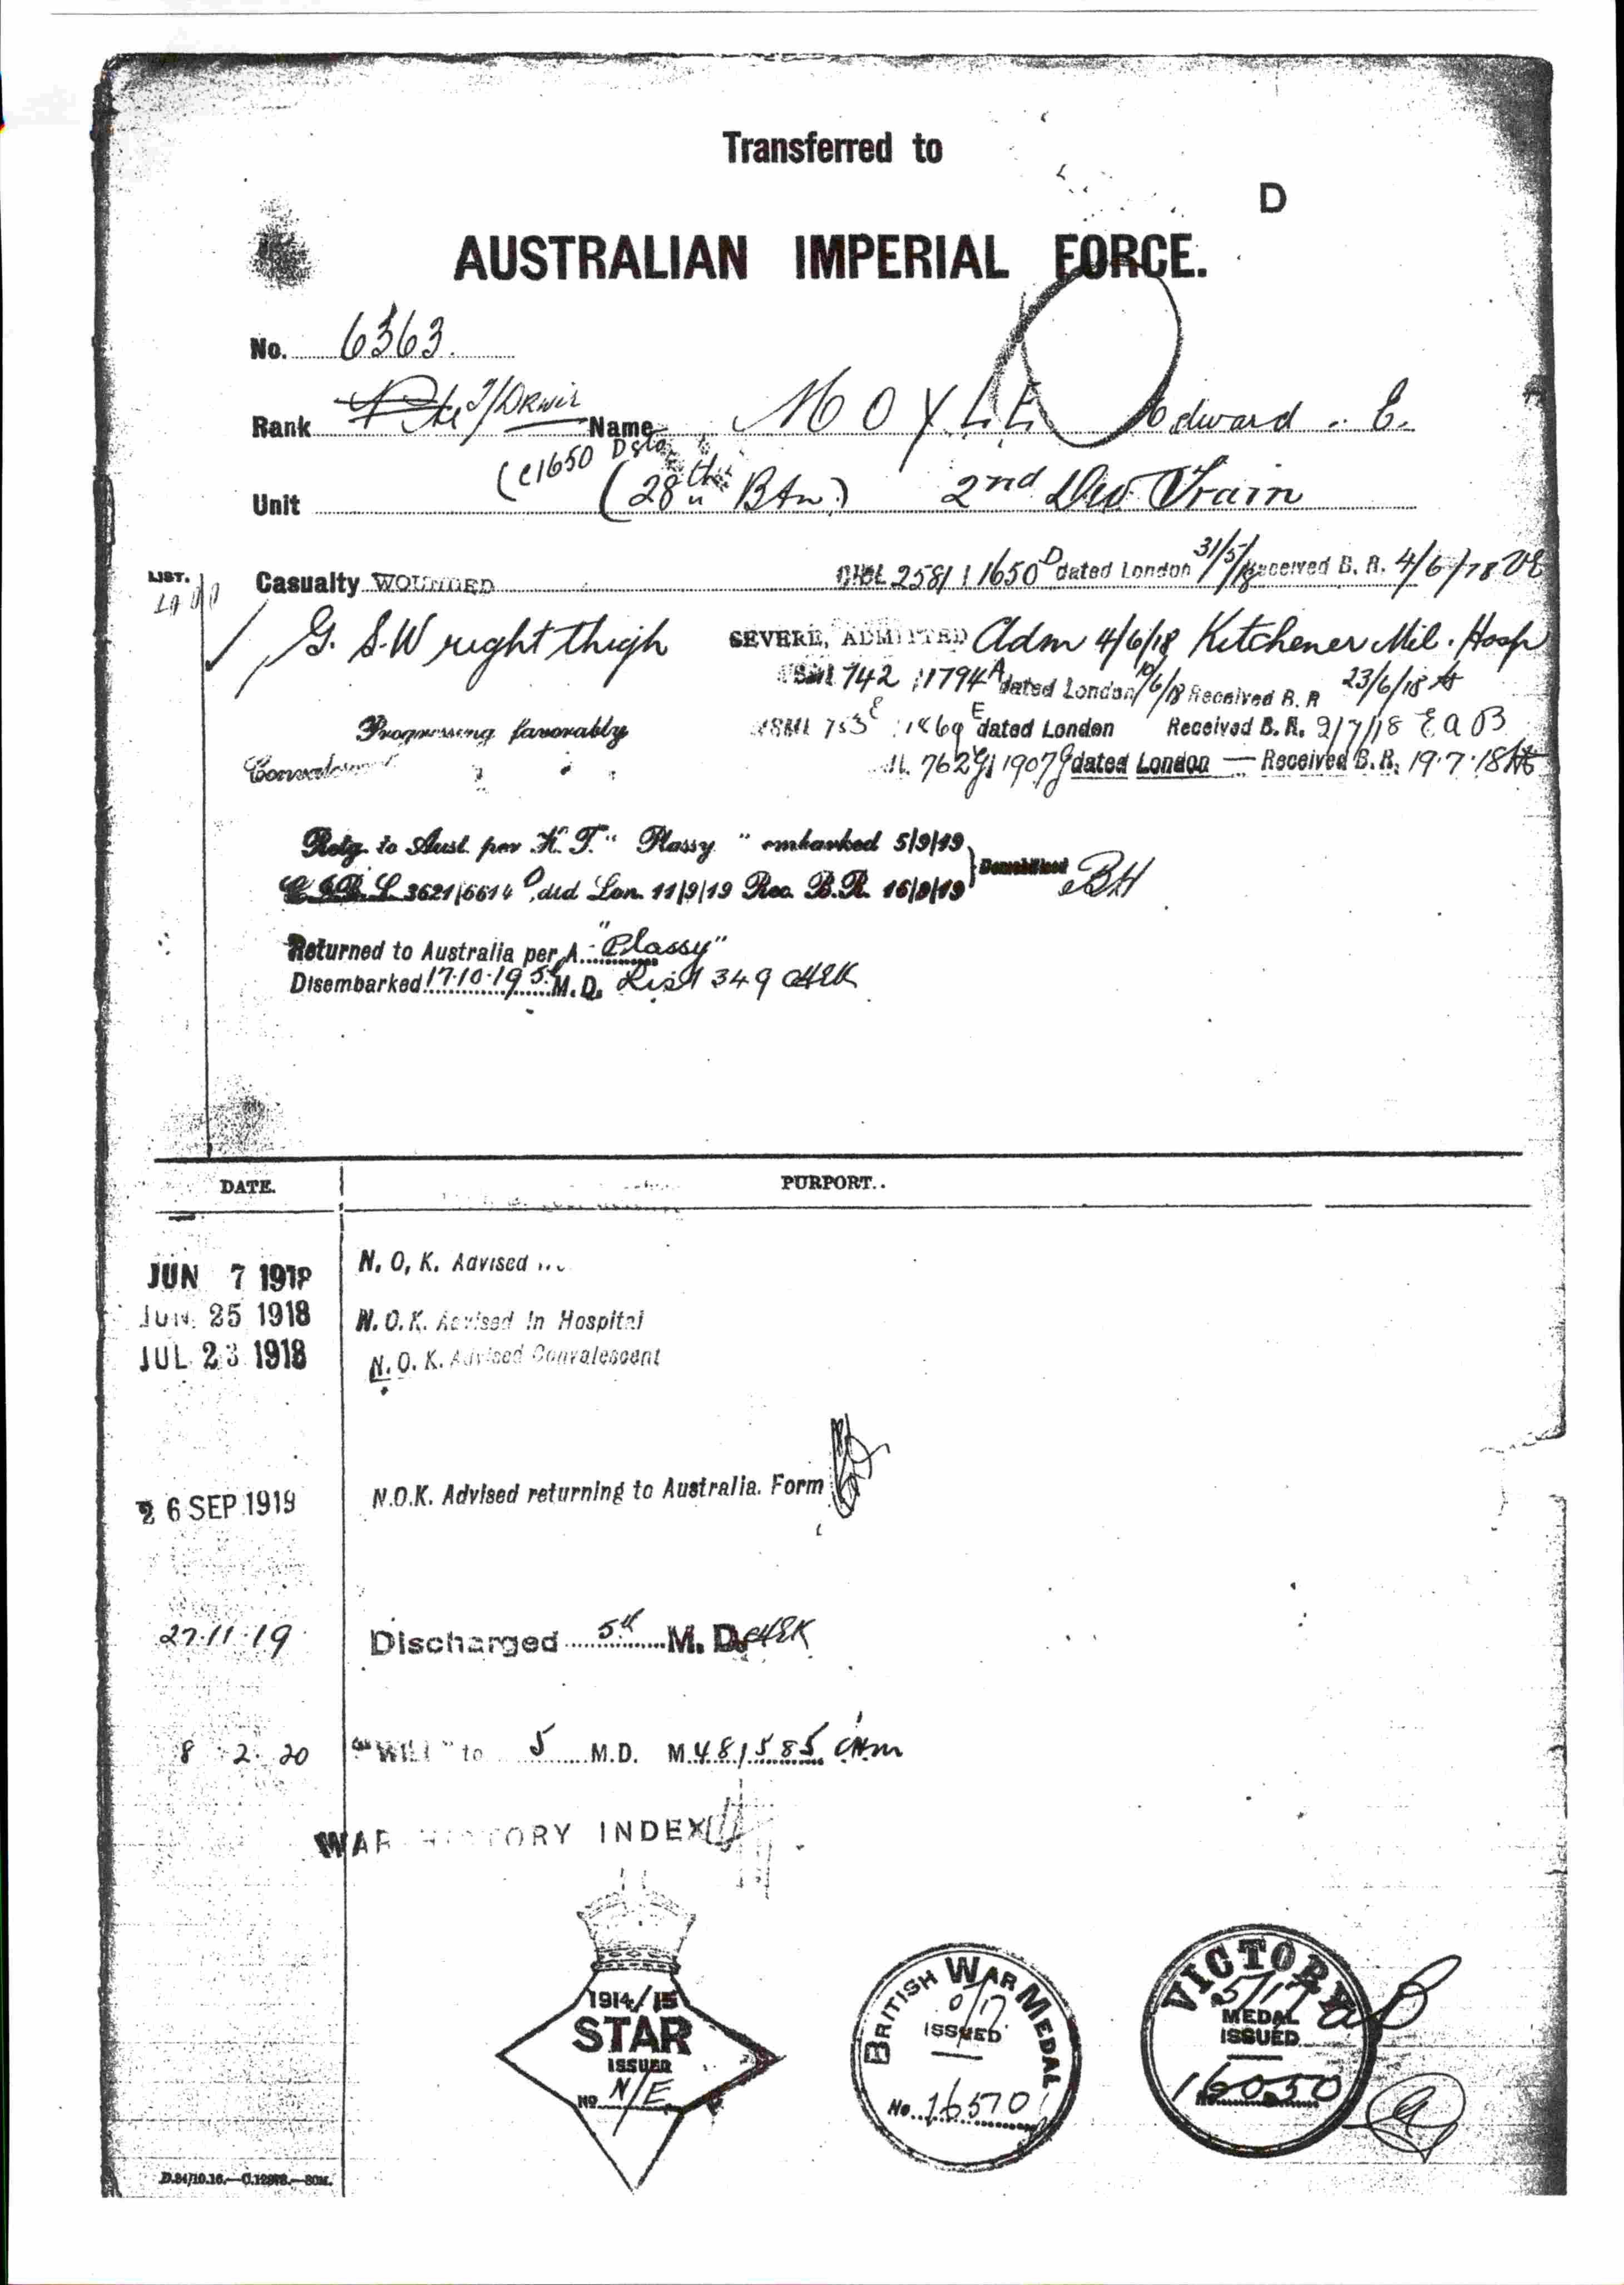 Transferred to
D
AUSTRALIAN IMPERIAL FORCE.
No. 6363.
Rank Pte T/Driver Name MOYLE Edward E.
(C1650 D
Unit (28th Btn) 2nd Div Train
LIST.
Casualty WOUNDED 2581 1650 D dated London 31/5/18 Received B. R. 4/6/18
G. S. W right thigh SEVERE, ADMITTED Adm 4/6/18 Kitchener Mil. Hosp
742 11794 A dated London 10/6/18 Received B. R 23/6/18
Progressing favorably 753 E 1869 E dated London Received B. R. 2/7/18 EAB
762 G 1907 G dated London — Received B. R. 19.7.18
Retg. to Aust. per H. T. " Plassy " embarked 5/9/19
3621/6614 D, dtd Lon. 11/9/19 Rec. B. R. 15/9/19 Demobilised BH
Returned to Australia per A. "Plassy"
Disembarked 17.10.19 5th M. D. List 349 CHEK
DATE. PURPORT.
JUN 7 1918 N. O. K. Advised
JUN 25 1918 N. O. K. Advised In Hospital
JUL 23 1918 N. O. K. Advised Convalescent
26 SEP 1919 N.O.K. Advised returning to Australia. Form
27.11.19 Discharged 5th M. D. CHEK
8 2 20 "WILL" to 5 M.D. M.481585
WAR HISTORY INDEX
1914/15
STAR
ISSUED
No N/E
BRITISH WAR MEDAL
ISSUED
No. 16570
VICTORY
5/17
MEDAL
ISSUED
No. 16050